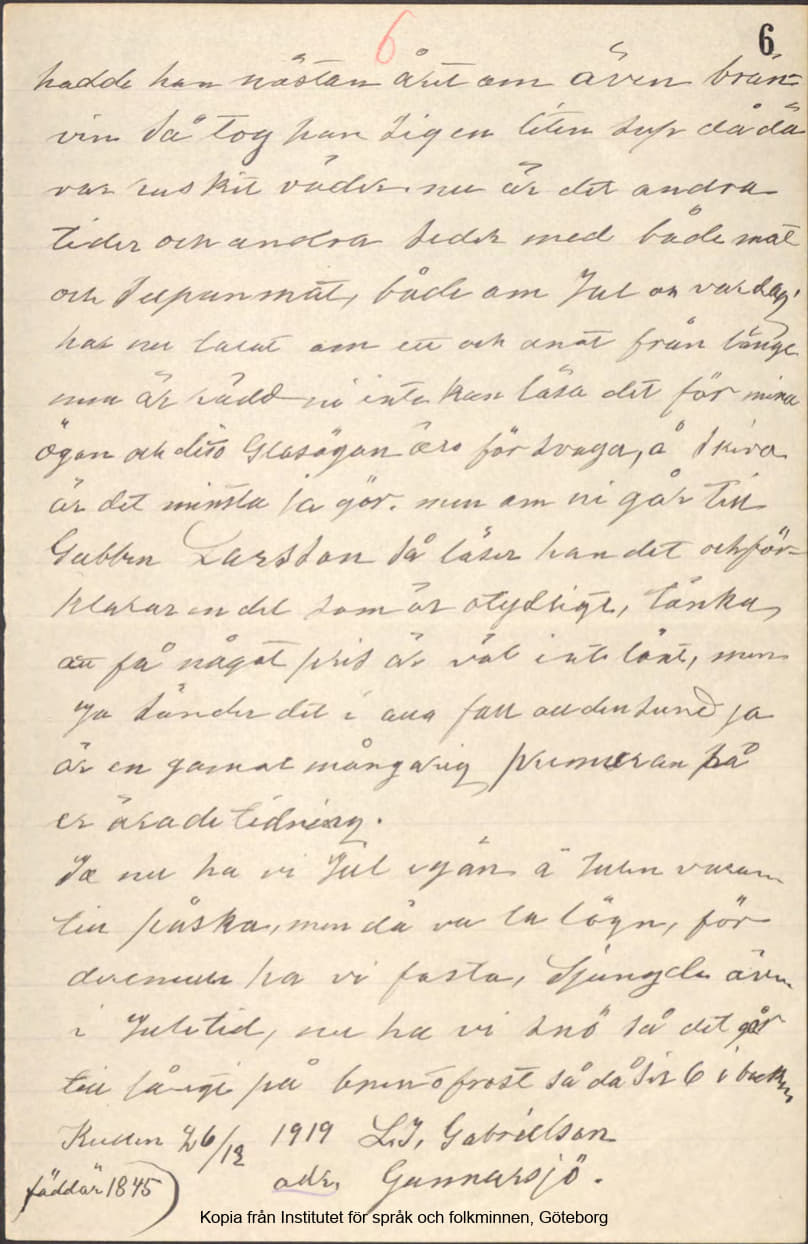 6 6
hadde han nästan året om även brän=
vin så tog han sig en liten sup då då
var ruskit väder. nu är det andra
tider och andra seder med både mat
och supanmat, både om Jul ok vardag.
har nu talat om ett och anat från länge
men är rädd ni inte kan läsa det för mina
ögon och Glasögon äro för svaga, å skriva
är det minsta ja gör. men om ni går till
Gubben Larsson så läser han det och för=
klarar en del som är otydligt, tänka
att få något pris är väl inte lönt, men
ja sänder det i alla fall
är en gamal mångårig på
er ärade tidning.
Ja nu ha vi Jul igän å Julen varar
till påska, men då va la lögn, för
ha vi fasta, även
i Juletid, nu ha vi snö så det går
till på så då 6 i
26/12 1919 L.J. Gabrielson
adr. Gunnarsjö.
född är 1845)
Kopia från Institutet för språk och folkminnen, Göteborg